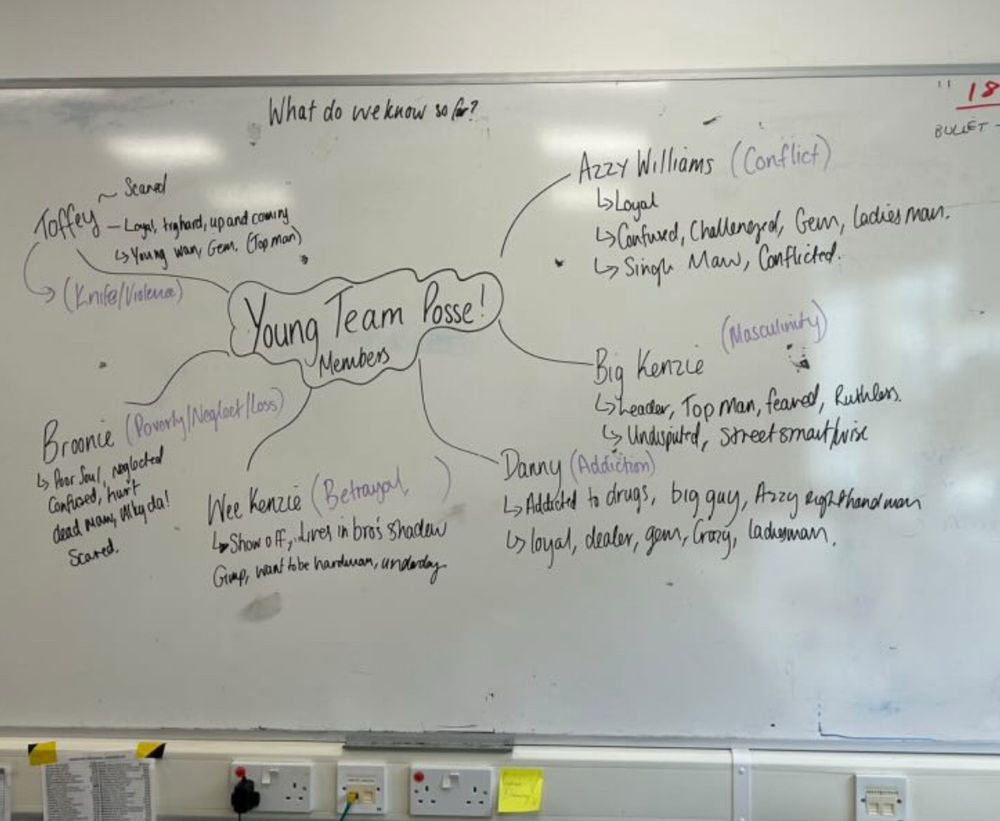 What do we know so far?
" 18
BULLET -
Toffey
Scared
Loyal, tryhard, up and coming
Young wan, Gem, (Top man)
(Knife/Violence)
Azzy Williams (Conflict)
Loyal
Confused, Challenged, Gem, Ladies man.
Single Maw, Conflicted.
Young Team Posse!
Members
(Masculinity)
Big Kenzie
Leader, Top Man, feared, Ruthless.
Undisputed, Streetsmart/wise
Broonie (Poverty/Neglect/Loss)
Poor Soul, neglected
Confused, hurt
dead maw, Alky da!
Scared.
Wee Kenzie (Betrayal )
Show off, Lives in bro's shadow
Gimp, want to be hardman, underdog
Danny (Addiction)
Addicted to drugs, big guy, Azzy right hand man
loyal, dealer, gem, Crazy, ladiesman.